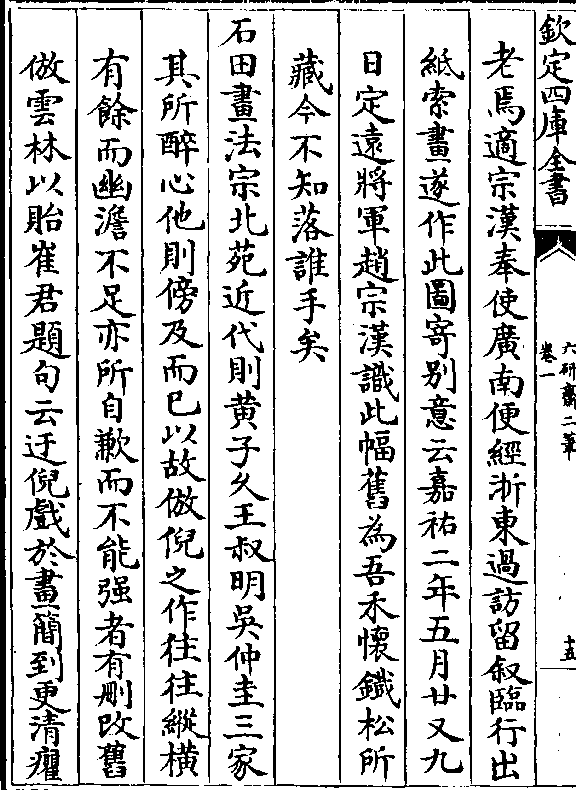 欽定四庫全書
六研齋二筆
卷一
十五
老焉適宗漢奉使廣南便經浙東過訪留叙臨行出
紙索畫遂作此圖寄别意云嘉祐二年五月廿又九
日定遠將軍趙宗漢識此幅舊為吾禾懷鐵松所
藏今不知落誰手矣
石田畫法宗北苑近代則黄子久王叔明吳仲圭三家
其所醉心他則傍及而已以故倣倪之作往往縱横
有餘而幽澹不足亦所自歉而不能强者有刪改舊
倣雲林以貽崔君題句云迂倪戲於畫簡到更清癯